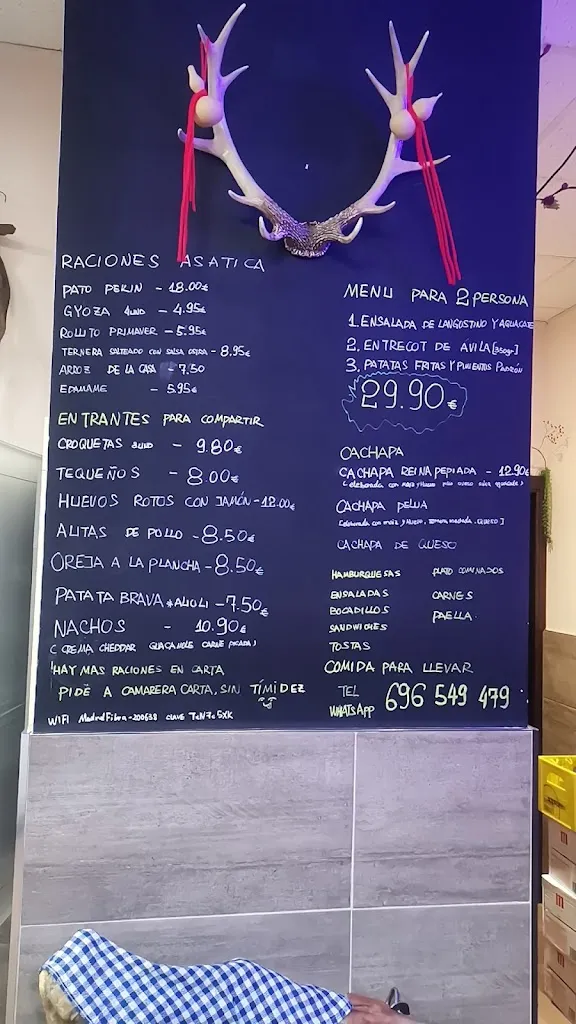 RACIONES ASATICA
PATO PEKIN - 18.00€
GYOZA 4UND - 4.95€
ROLLITO PRIMAVER - 5.95€
TERNERA SALTEADO CON SALSA OSTRA - 8.95€
ARROZ DE LA CASA - 7,50
EDAMAME - 5.95€
ENTRANTES PARA COMPARTIR
CROQUETAS 8UND - 9.80€
TEQUEÑOS - 8.00€
HUEVOS ROTOS CON JAMÓN - 12.00€
ALITAS DE POLLO - 8.50€
OREJA A LA PLANCHA - 8.50€
PATATA BRAVA + ALIOLI - 7.50€
NACHOS - 10.90€
( CREMA CHEDDAR GUACAMOLE CARNE PICADA )
HAY MAS RACIONES EN CARTA
PIDE A CAMARERA CARTA, SIN TÍMIDEZ
WIFI MadridFibra-200638 CLAVE
MENU PARA 2 PERSONA
1. ENSALADA DE LANGOSTINO Y AGUACATE
2. ENTRECOT DE AVILA [350gr]
3. PATATAS FRITAS Y PIMIENTOS PADRÓN
29.90€
CACHAPA
CACHAPA REINA PEPIADA - 12.90€
( elaborada con maiz y Huevo pollo
CACHAPA PELUA
[elaborada con maiz y Huevo, ternera mechada, QUESO]
CACHAPA DE QUESO
HAMBURGUESAS
ENSALADAS
BOCADILLOS
SANDWICHES
TOSTAS
PLATO COMBINADOS
CARNES
PAELLA
COMIDA PARA LLEVAR
TEL
WHATSAPP
696 549 479